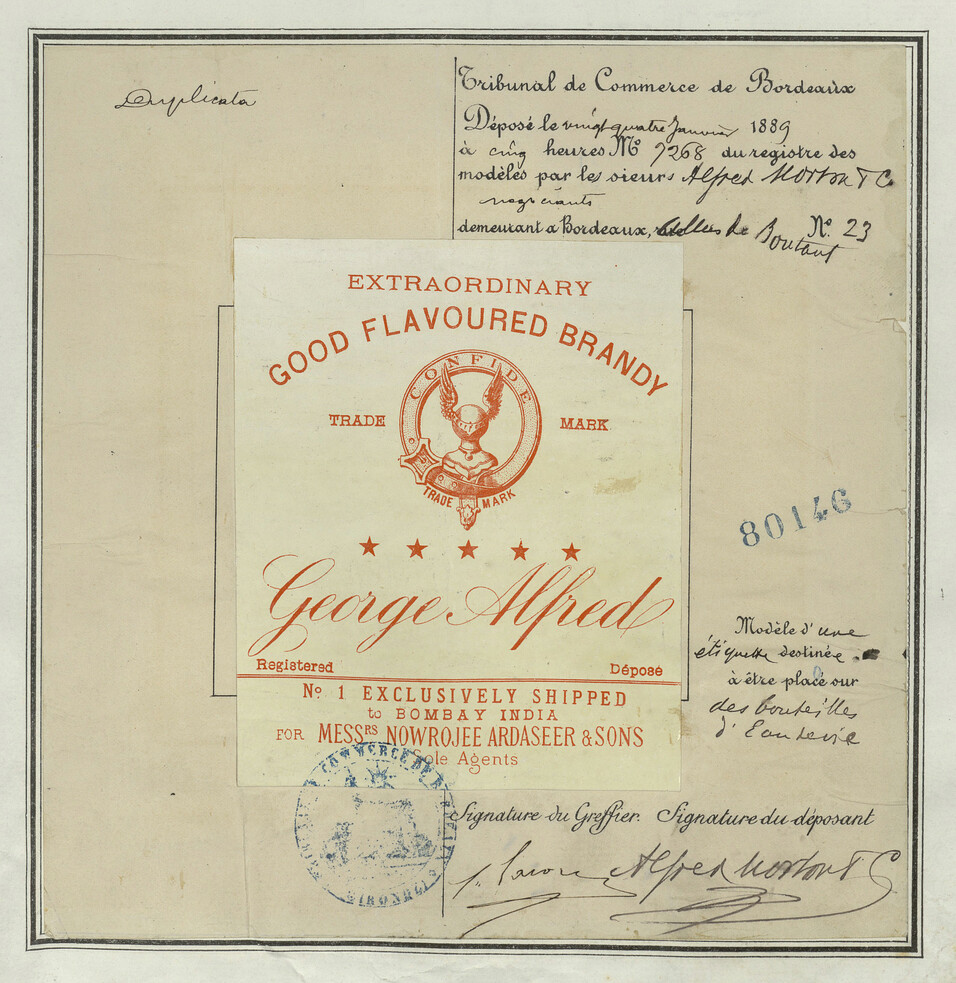 Duplicata
Tribunal de Commerce de Bordeaux
Déposé le vingt quatre Janvier 1889
à cinq heures No 9268 du registre des
modèles par les sieurs Alfred Morton & C.
négociants
demeurant à Bordeaux, No. 23
EXTRAORDINARY
GOOD FLAVOURED BRANDY
CONFIDE
TRADE MARK
TRADE MARK
★ ★ ★ ★ ★
George Alfred
Registered Déposé
No 1 EXCLUSIVELY SHIPPED
to BOMBAY INDIA
FOR MESSRS NOWROJEE ARDASEER & SONS
Sole Agents
80146
Modèle d'une
étiquette destinée
à être placé sur
des bouteilles
d'Eau de vie
COMMERCE DE
GIRONDE
Signature du Greffier. Signature du déposant
Alfred Morton & C